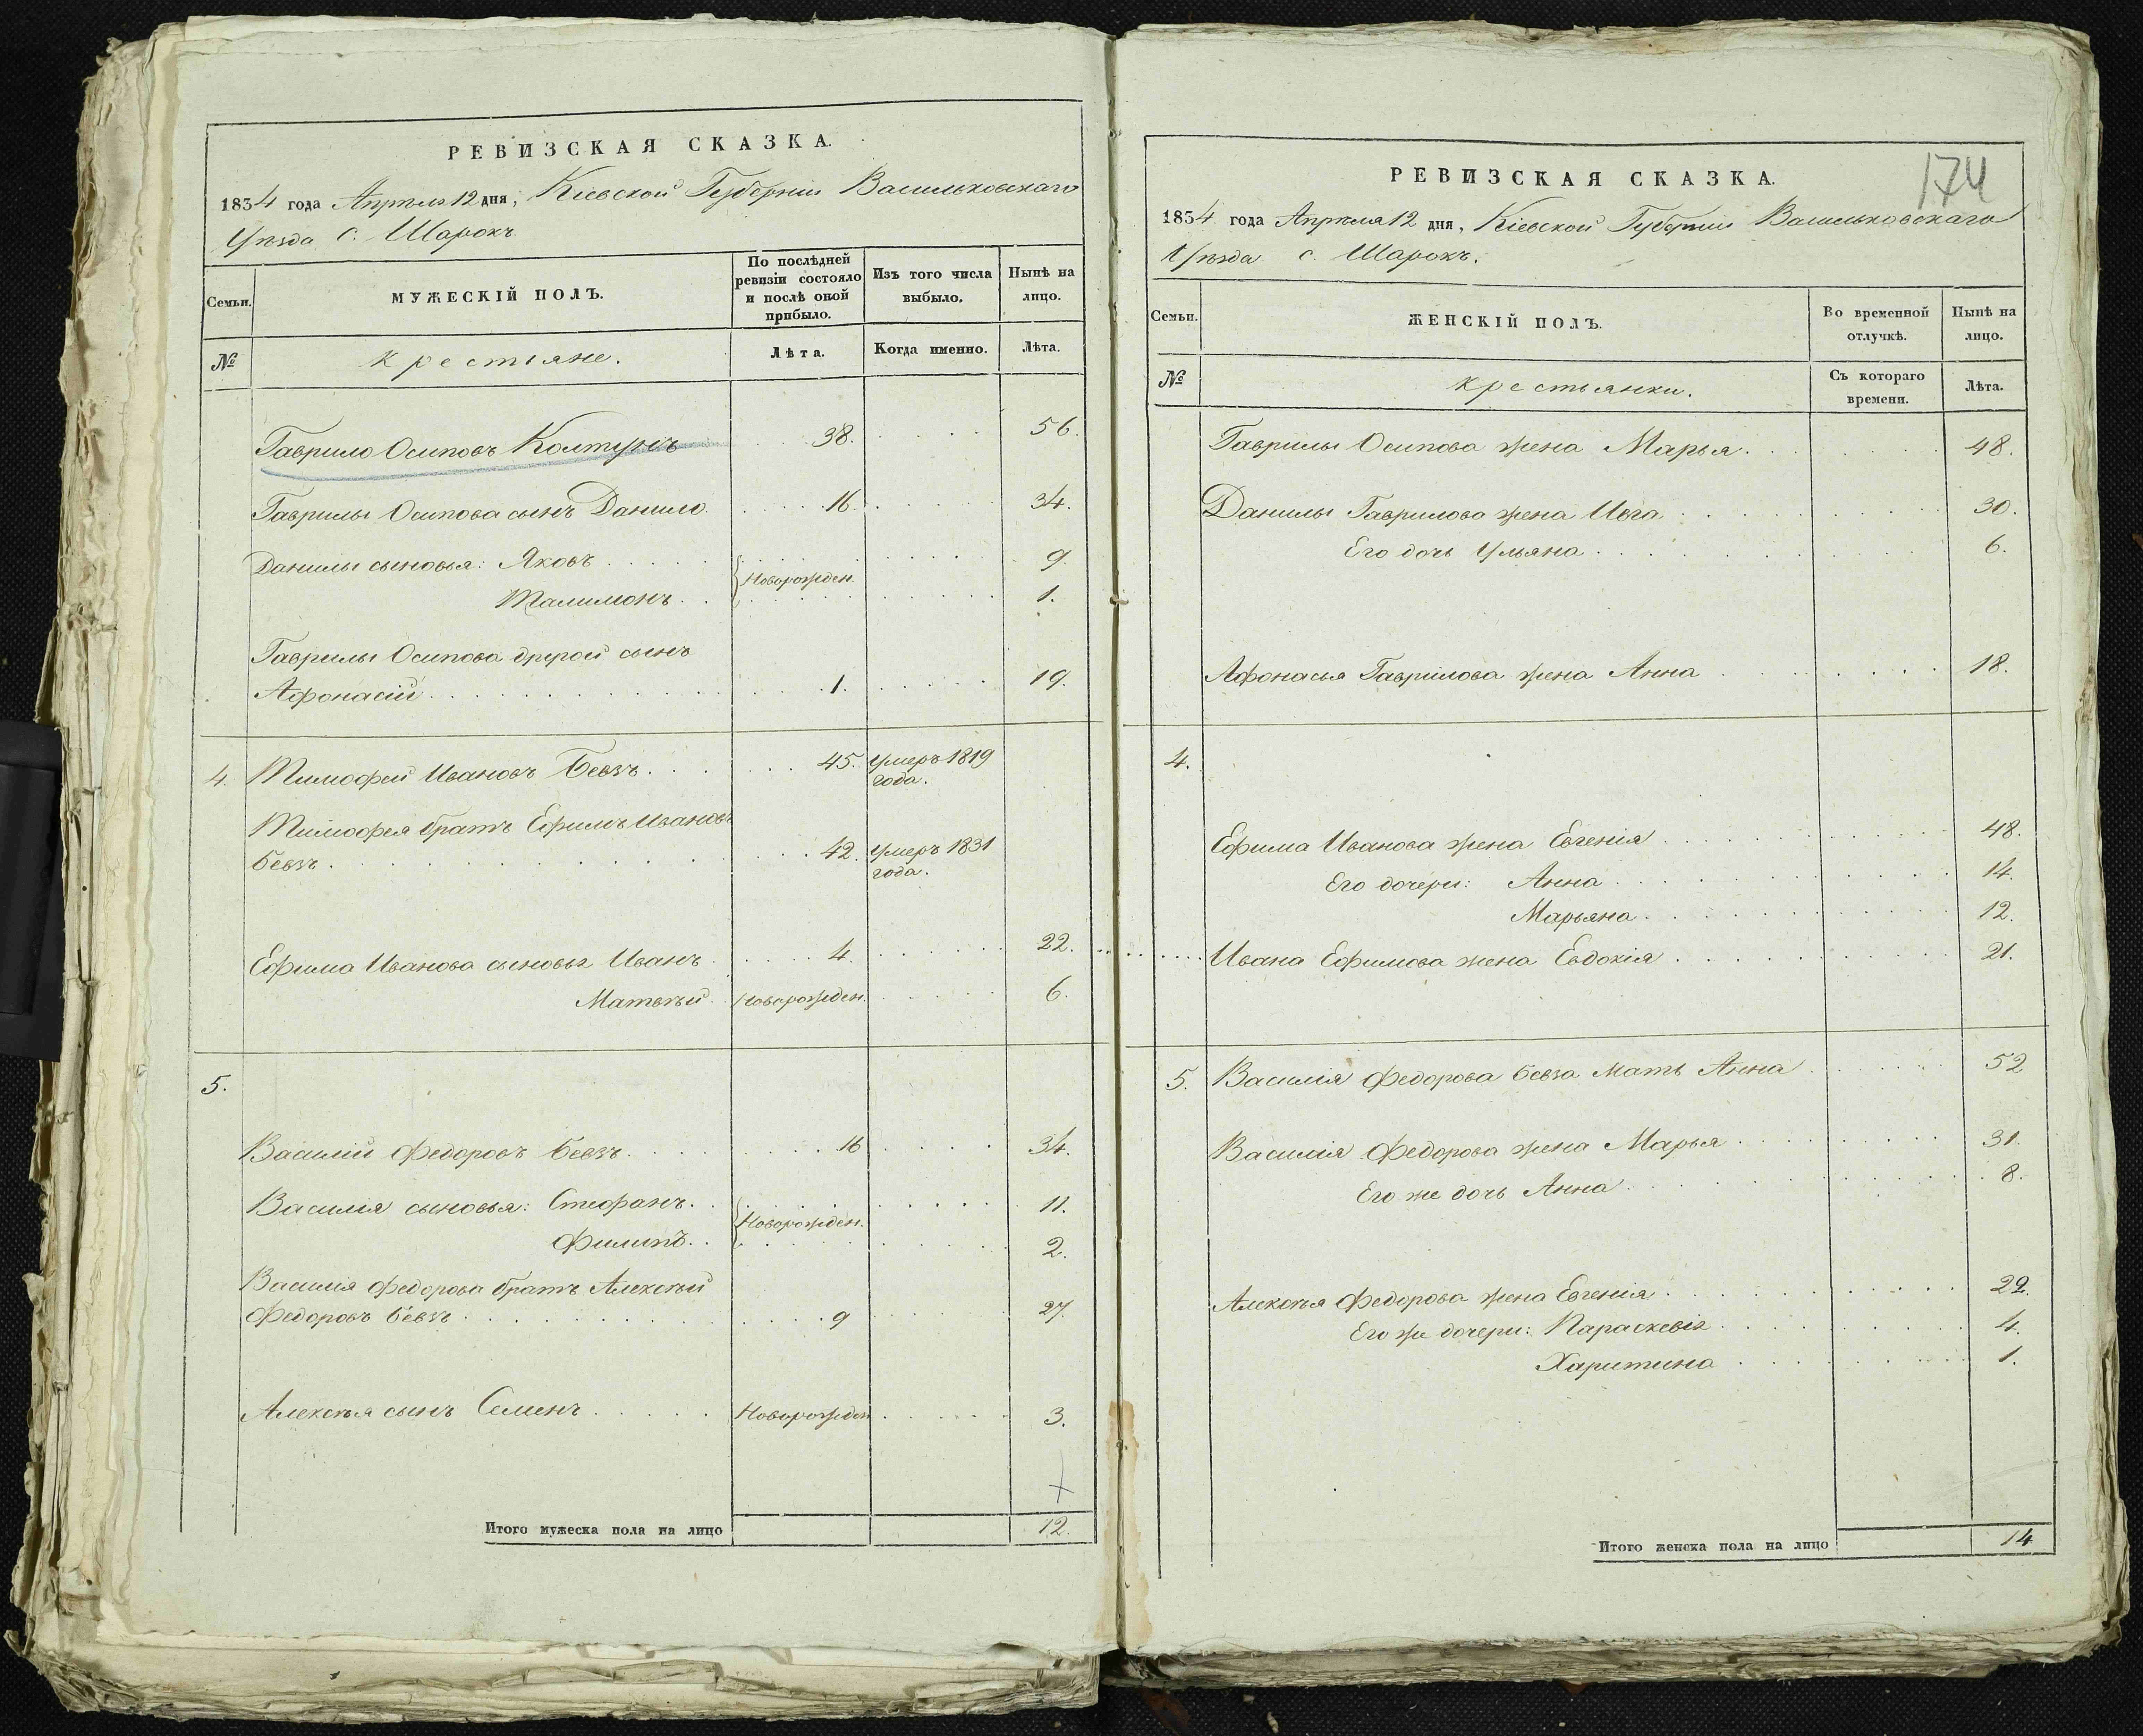 РЕВИЗСКАЯ СКАЗКА.
1834 года Апреля 12 дня, Кіевской Губерніи Васильковскаго
Уѣзда с. Шарокъ
Семьи.
МУЖЕСКІЙ ПОЛЪ.
По послѣдней ревизіи состояло и послѣ оной прибыло.
Изъ того числа выбыло.
Нынѣ на лицо.
№
крестьяне.
Лѣта.
Когда именно.
Лѣта.
Гаврило Осиповъ Колтунъ 38. 56.
Гаврилы Осипова сынъ Данило 16. 34.
Данилы сыновья: Яковъ 9.
Новорожден.
Талимонъ 1.
Гаврилы Осипова другой сынъ
Афонасій 1. 19.
4. Тимофей Ивановъ Бевзъ 45. умеръ 1819
года.
Тимофея братъ Ефимъ Ивановъ
Бевзъ 42. умеръ 1831
года.
Ефима Иванова сыновья Иванъ 4. 22.
Матвѣй Новорожден. 6.
5.
Василій Федоровъ Бевзъ 16 34.
Василія сыновья: Стефанъ 11.
Новорожден.
Филипъ 2.
Василія Федорова братъ Алексѣй
Федоровъ Бевзъ 9 27.
Алексѣя сынъ Семенъ Новорожден 3.
Итого мужеска пола на лицо 12.
174
РЕВИЗСКАЯ СКАЗКА.
1834 года Апрѣля 12 дня, Кіевской Губерніи Васильковскаго
Уѣзда с. Шарокъ.
Семьи.
ЖЕНСКІЙ ПОЛЪ.
Во временной отлучкѣ.
Нынѣ на лицо.
№
крестьянки.
Съ котораго времени.
Лѣта.
Гаврилы Осипова жена Марья 48.
Данилы Гаврилова жена Ивга 30.
Его дочь Ульяна 6.
Афонасья Гаврилова жена Анна 18.
4.
Ефима Иванова жена Евгенія 48.
Его дочери: Анна 14.
Марьяна 12.
Ивана Ефимова жена Евдокія 21.
5. Василія Федорова Бевза мать Анна 52
Василія Федорова жена Марья 31.
Его же дочь Анна 8.
Алексѣя Федорова жена Евгенія 22.
Его же дочери: Параскевія 4.
Харитина 1.
Итого женска пола на лицо 14